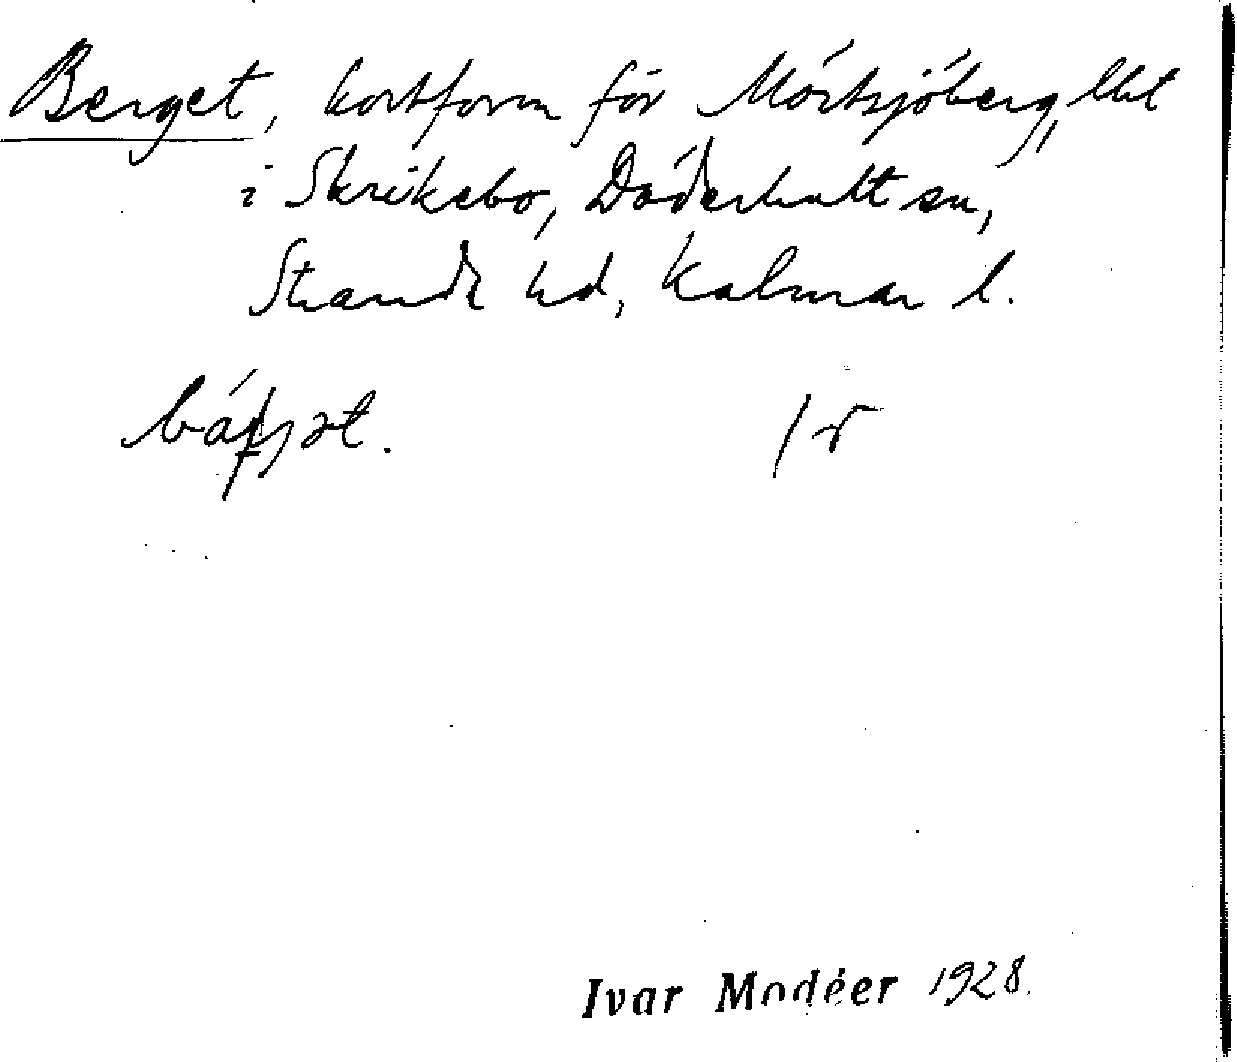 Berget, kortform för Mörtsjöberg, lht
i Skrikebo, Döderhult sn,
Stranda hd, Kalmar l.
Ivar Modéer 1928.